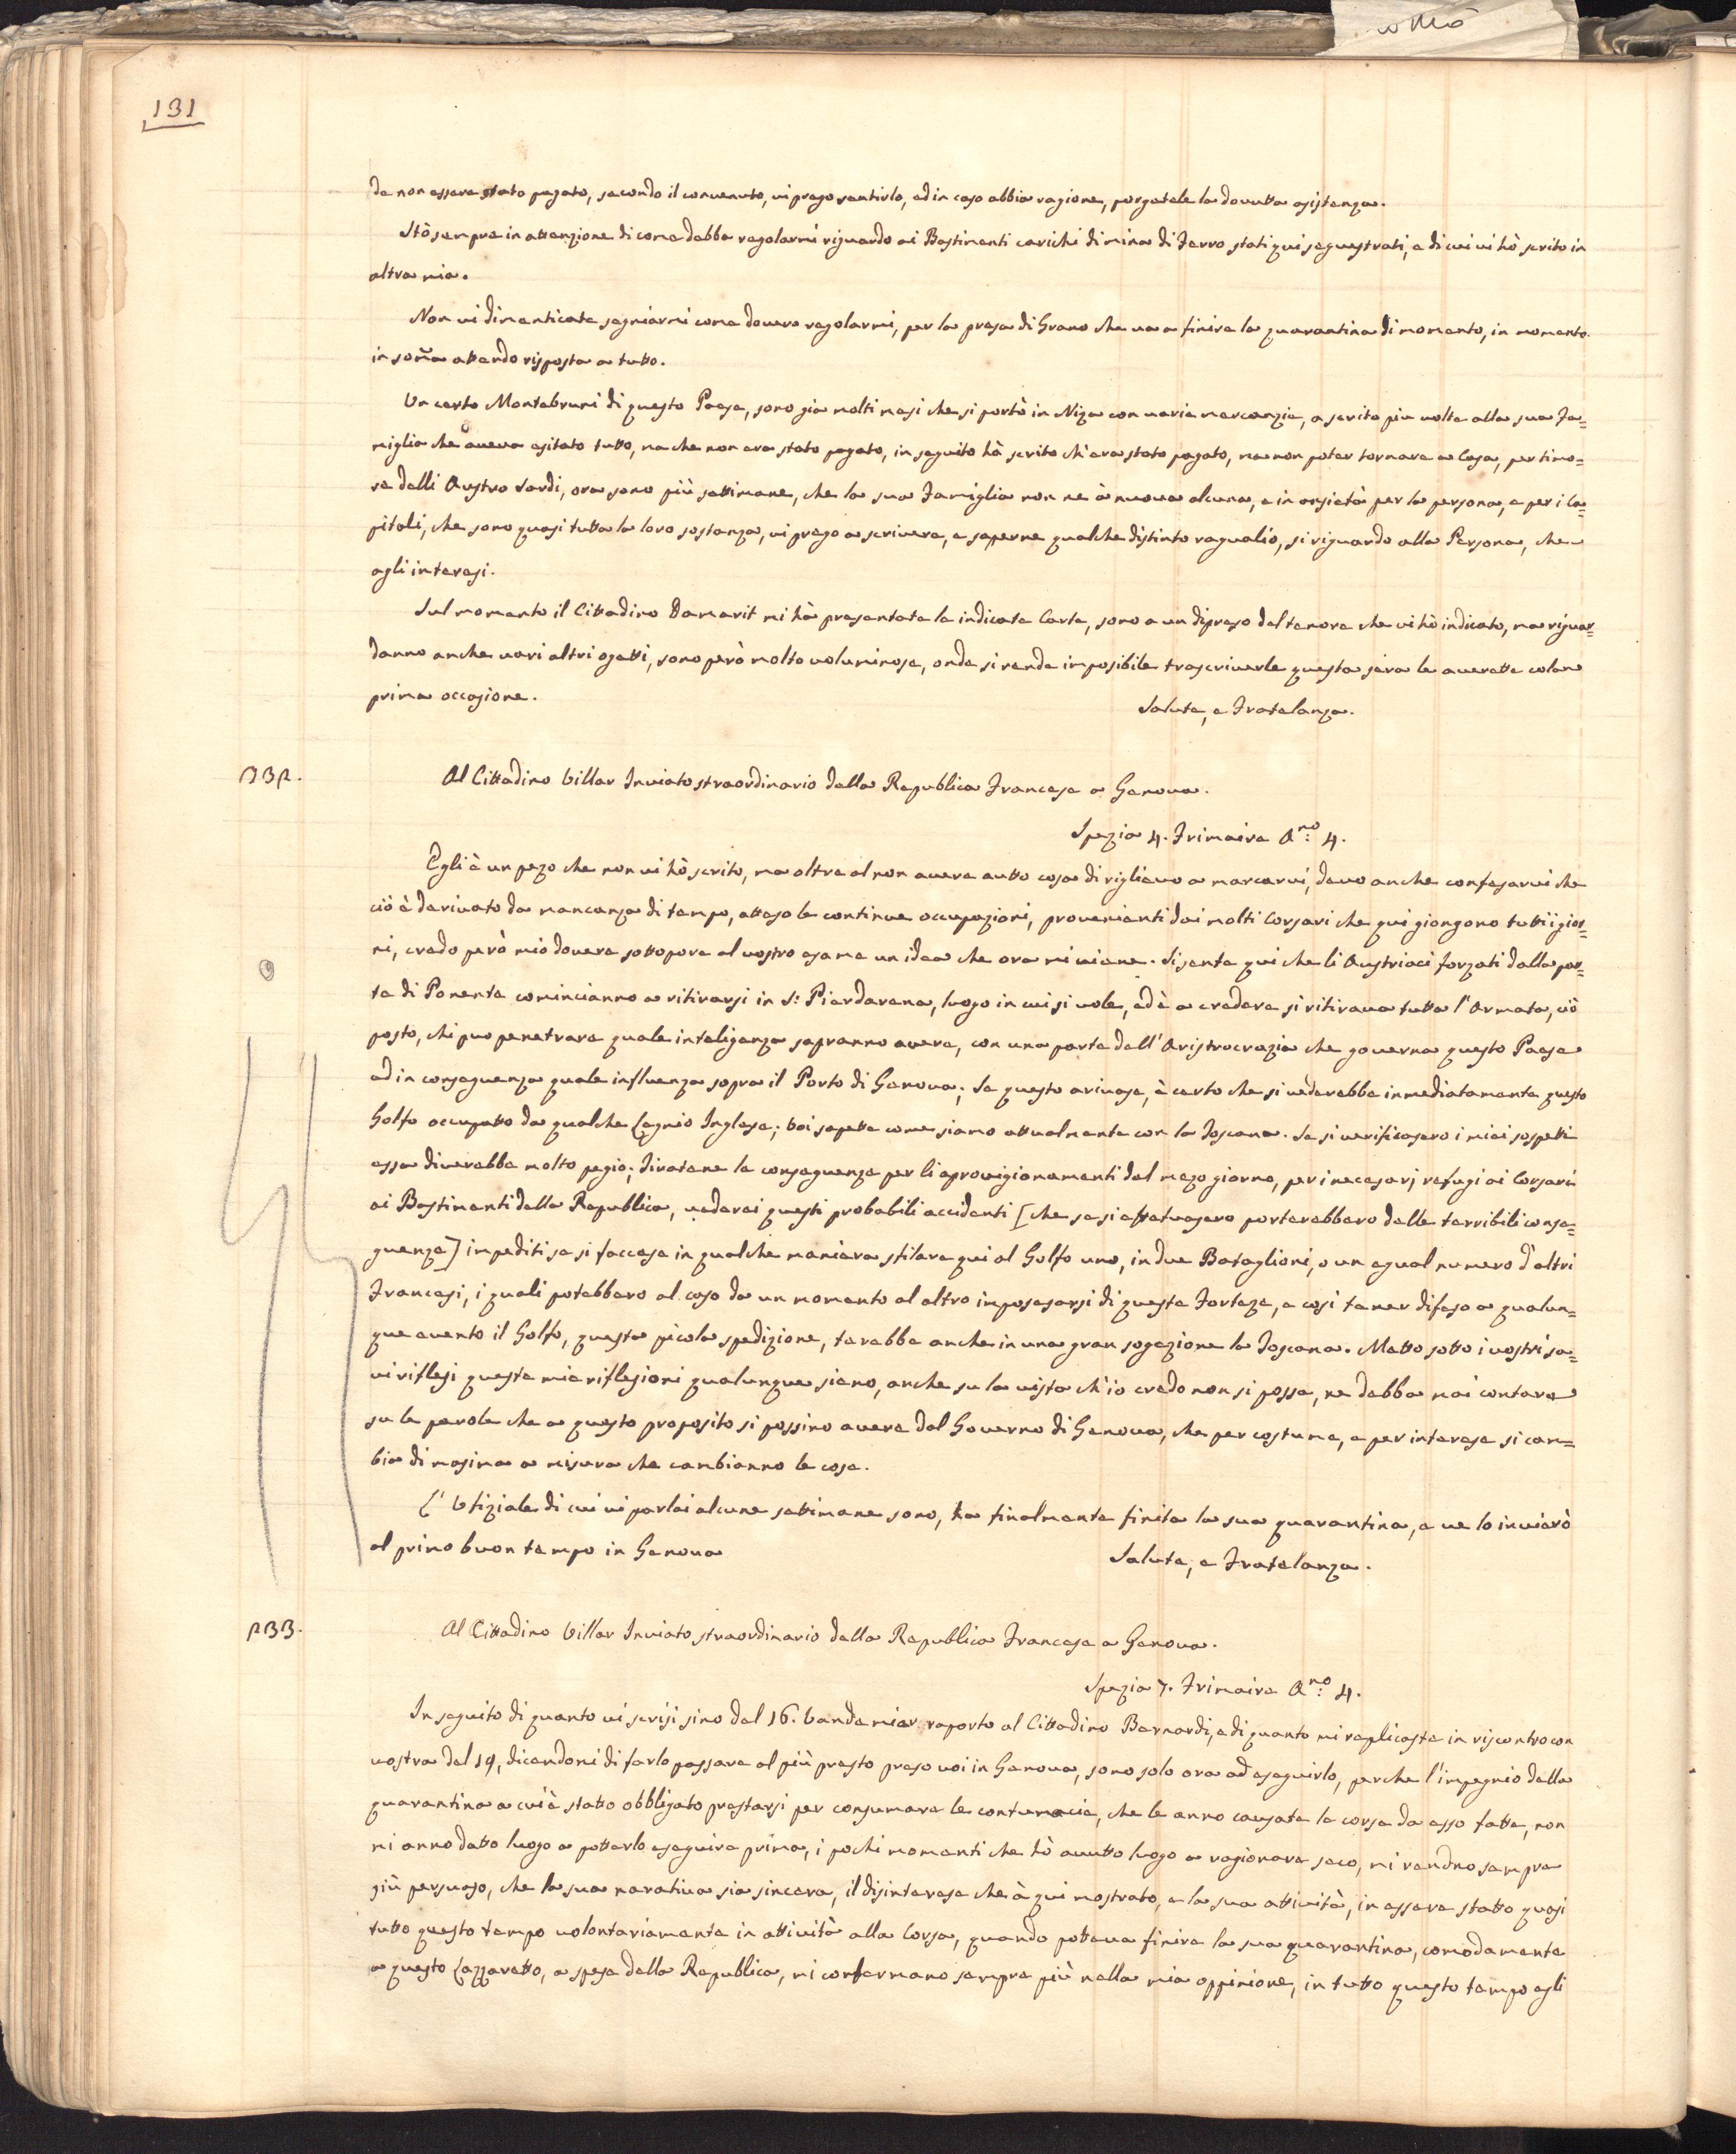 wMo
131
de non essere stato pagato, secondo il convenuto, vi prego sentirlo, ed in caso abbia ragione, porgetele la dovutta asistenza.
Stò sempre in attenzione di come debba regolarmi riguardo ai Bastimenti carichi di mina di Ferro stati qui sequestrati, e di cui vi hò scrito in
altra mia.
Non vi dimenticate segniarmi come dovero regolarmi, per la presa di Grano che va a finire la quarantina di momento, in momento.
in soma attendo risposta a tutto.
Un certo Montebruni di questo Paese, sono gia molti mesi che si portò in Niza con varie mercanzie, a scrito piu volte alla sua Fa=
miglia che aveva esitato tutto, ma che non era stato pagato, in seguito hà scrito ch'era stato pagato, ma non poter tornare a Casa, per timo=
re delli Austro Sardi, ora sono più settimane, che la sua Famiglia non ne à nuova alcuna, e in ansietà per la persona, e per i Ca=
pitali, che sono quasi tutta la loro sostanza, vi prego a scrivere, e saperne qualche distinto ragualio, si riguardo alla Persona, che
agli interesi.
Sul momento il Cittadino Damerit mi hà presentate le indicate Carte, sono a un dipreso del tenore che vi hò indicato, ma riguar=
danno anche vari altri ogetti, sono però molto voluminose, onde si rende imposibile trascriverle questa sera le averette colla
prima occasione.
Salute, e Fratelanza.
232.
Al Cittadino Villar Inviato straordinario della Republica Francese a Genova.
Spezia 4. Frimaire Ano: 4.
Egli è un pezo che non vi hò scrito, ma oltre al non avere autto cosa di riglievo a marcarvi, devo anche confesarvi che
ciò è derivato da mancanza di tempo, atteso le continue occupazioni, provenienti dai molti Corsari che qui giongono tutti i gior=
ni, credo però mio dovere sottopore al vostro esame un idea che ora mi viene. Si sente qui che li Austriaci forzati dalla par=
te di Ponente cominciano a ritirarsi in S: Pierdarena, luogo in cui si vole, ed è a credere si ritirava tutta l'Armata, ciò
posto, chi puo penetrare quale inteligenza sapranno avere, con una parte dell'Aristrocrazia che governa questo Paese
ed in conseguenza quale influenza sopra il Porto di Genova; Se questo arivase, è certo che si vederebbe inmediatamente questo
Golfo occupatto da qualche Legnio Inglese; Voi sapette come siamo attualmente con la Toscana. Se si verificasero i miei sospetti
essa diverebbe molto pegio; tiratene le conseguenze per li aprovigionamenti del mezo giorno, per i necesarj refugi ai Corsari
ai Bastimenti della Republica, vederei questi probabili accidenti [che se si effetuasero porterebbero delle terribili conse=
guenze] impediti se si facesse in qualche maniera sfilare qui al Golfo uno, in due Bataglioni, o un egual numero d'altri
Francesi, i quali potebbero al caso da un momento al altro imposesarsi di queste Forteze, e cosi tener difeso a qualun=
que evento il Golfo, questa picola spedizione, terebbe anche in una gran sogezione la Toscana. Metto sotto i vostri sa=
vi riflesi queste mie riflesioni qualunque siano, anche su la vista ch'io credo non si possa, ne debba mai contare
su le parole che a questo proposito si possino avere dal Governo di Genova, che per costume, e per interese si cam=
bia di masima a misura che cambianno le cose.
L'Ufiziale di cui vi parlai alcune settimane sono, ha finalmente finita la sua quarantina, e ve lo invierò
al primo buon tempo in Genova
Salute, e Fratelanza.
233.
Al Cittadino Villar Inviato straordinario della Republica Francese a Genova.
Spezia 7. Frimaire Ano: 4.
In seguito di quanto vi scrisi sino dal 16. Vandemier raporto al Cittadino Bernardi, e di quanto mi replicaste in riscontro con
vostra del 19, dicendomi di farlo passare al più presto preso voi in Genova, sono solo ora ad eseguirlo, perche l'impegnio della
quarantina a cui è statto obbligato prestarsi per consumare le contumacie, che le anno causate le corse da esso fatte, non
mi anno datto luogo a potterlo eseguire prima, i pochi momenti che hò avutto luogo a ragionare seco, mi rendno sempre
più persuaso, che la sua narativa sia sincera, il disinterese che à qui mostrato, e la sua attività, in essere statto quasi
tutto questo tempo volontariamente in attività alla Corsa, quando potteva finire la sua quarantina, comodamente
a questo Lazzaretto, a spese della Republica, mi confermano sempre più nella mia oppinione, in tutto questo tempo egli